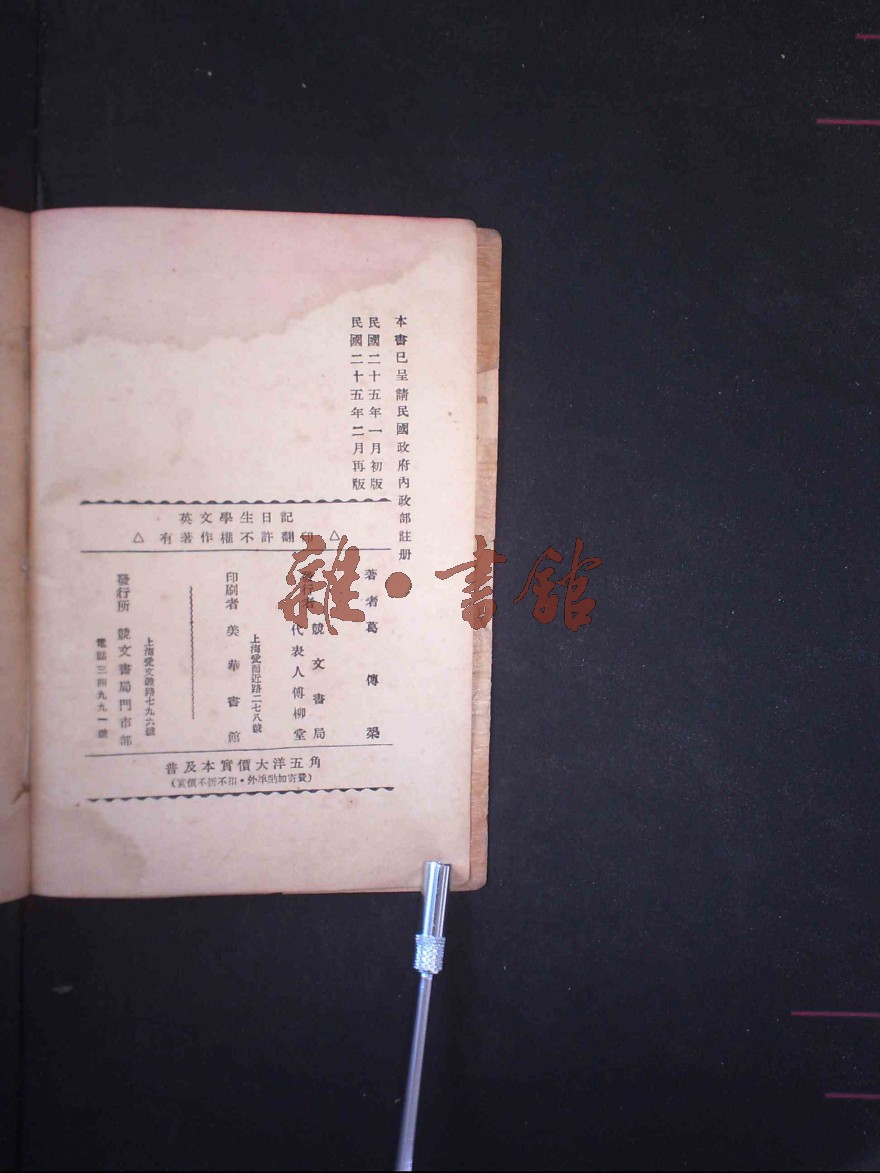 本書已呈請民國政府內政部註册
民國二十五年一月初版
民國二十五年二月再版
英文學生日記
△ 有著作權不許翻印 △
著者 葛傳槼
發行者 競文書局
代表人傅柳堂
上海愛而近路二七八號
印刷者 美華書館
上海愛文義路七九六號
發行所 競文書局門市部
電話三四九九一號
普及本實價大洋五角
(實價不折不扣·外埠酌加寄費)
雜·書館